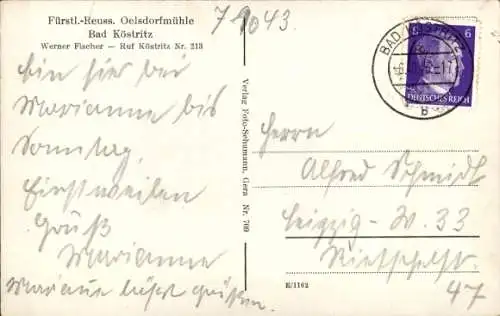 Fürstl.-Reuss. Oelsdorfmühle
Bad Köstritz
Werner Fischer — Ruf Köstritz Nr. 213
7 9043.
bin hier bei
Marianne bis
Sonntag,
Einstweilen
Gruß
Marianne
Mariane lässt grüßen.
Verlag Foto-Schumann, Gera Nr. 709
BAD KÖSTRITZ
B
6
DEUTSCHES REICH
Herrn
Alfred Schmidt
Leipzig-W. 33
Rietschelstr.
47
E/1162